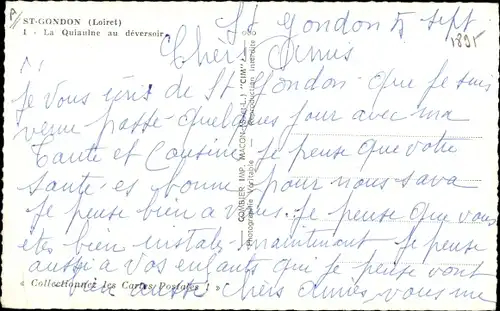 ST-GONDON (Loiret)
1 - La Quiaulne au déversoir
St Gondon 5 sept
1895
Chèrs Amis
Je vous écris de St Gondon que je suis
venue passé quelques jour avec ma
Tante et Cousine je pense que votre
santé es bonne pour nous sava
je pense bien a vous. je pense que vous
etes bien instalez maintenant je pense
aussi a vos enfants qui je pense vont
bien aussi chers amies vous me
« Collectionnez les Cartes Postales ! »
COMBIER IMP. MACON (S.-et-L.) "CIM"
Photographie Véritable - Reproduction interdite